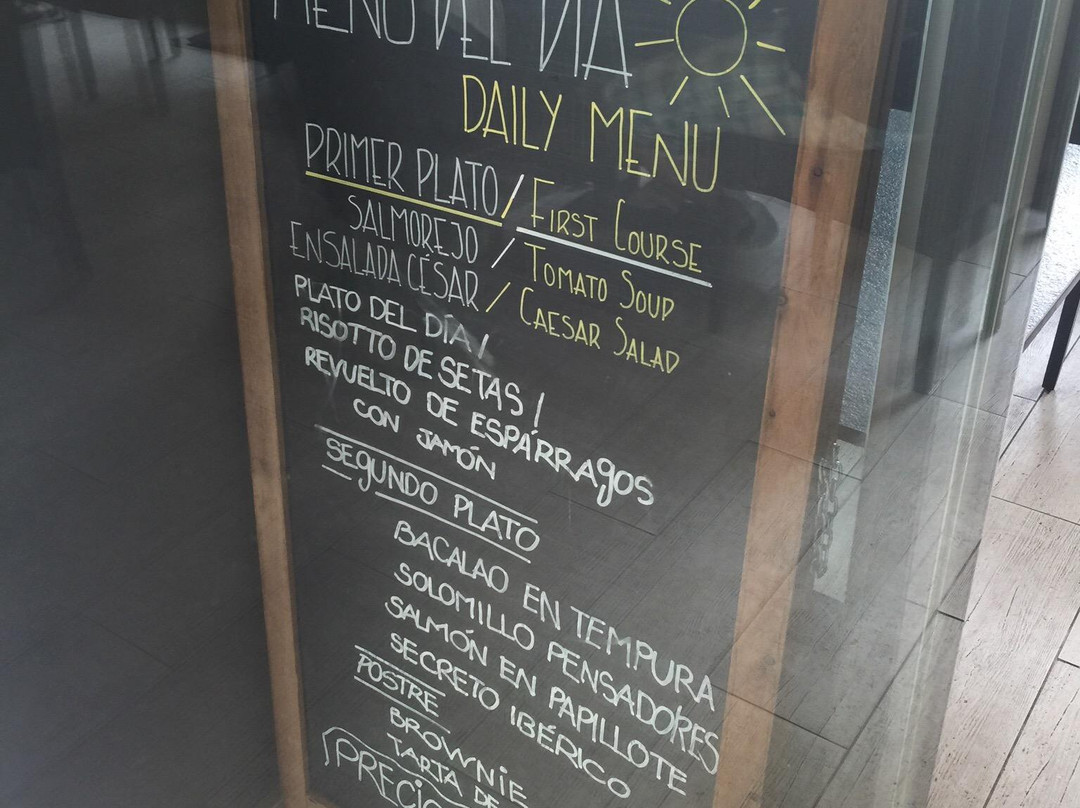 MENÚ DEL DÍA
DAILY MENU
PRIMER PLATO / FIRST COURSE
SALMOREJO / TOMATO SOUP
ENSALADA CÉSAR / CAESAR SALAD
PLATO DEL DÍA /
RISOTTO DE SETAS /
REVUELTO DE ESPÁRRAGOS
CON JAMÓN
SEGUNDO PLATO
BACALAO EN TEMPURA
SOLOMILLO PENSADORES
SALMÓN EN PAPILLOTE
SECRETO IBÉRICO
POSTRE
BROWNIE
TARTA DE
PRECIO